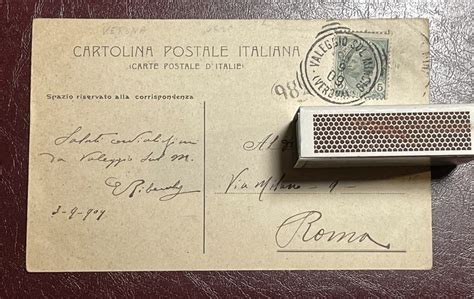 CARTOLINA POSTALE ITALIANA
(CARTE POSTALE D'ITALIE)
VALEGGIO SUL MINCIO
(VERONA)
09
5
982
Spazio riservato alla corrispondenza
Saluti cordialissimi
da Valeggio sul M.
3-9-909
Al
Via Milano - 9 -
Roma